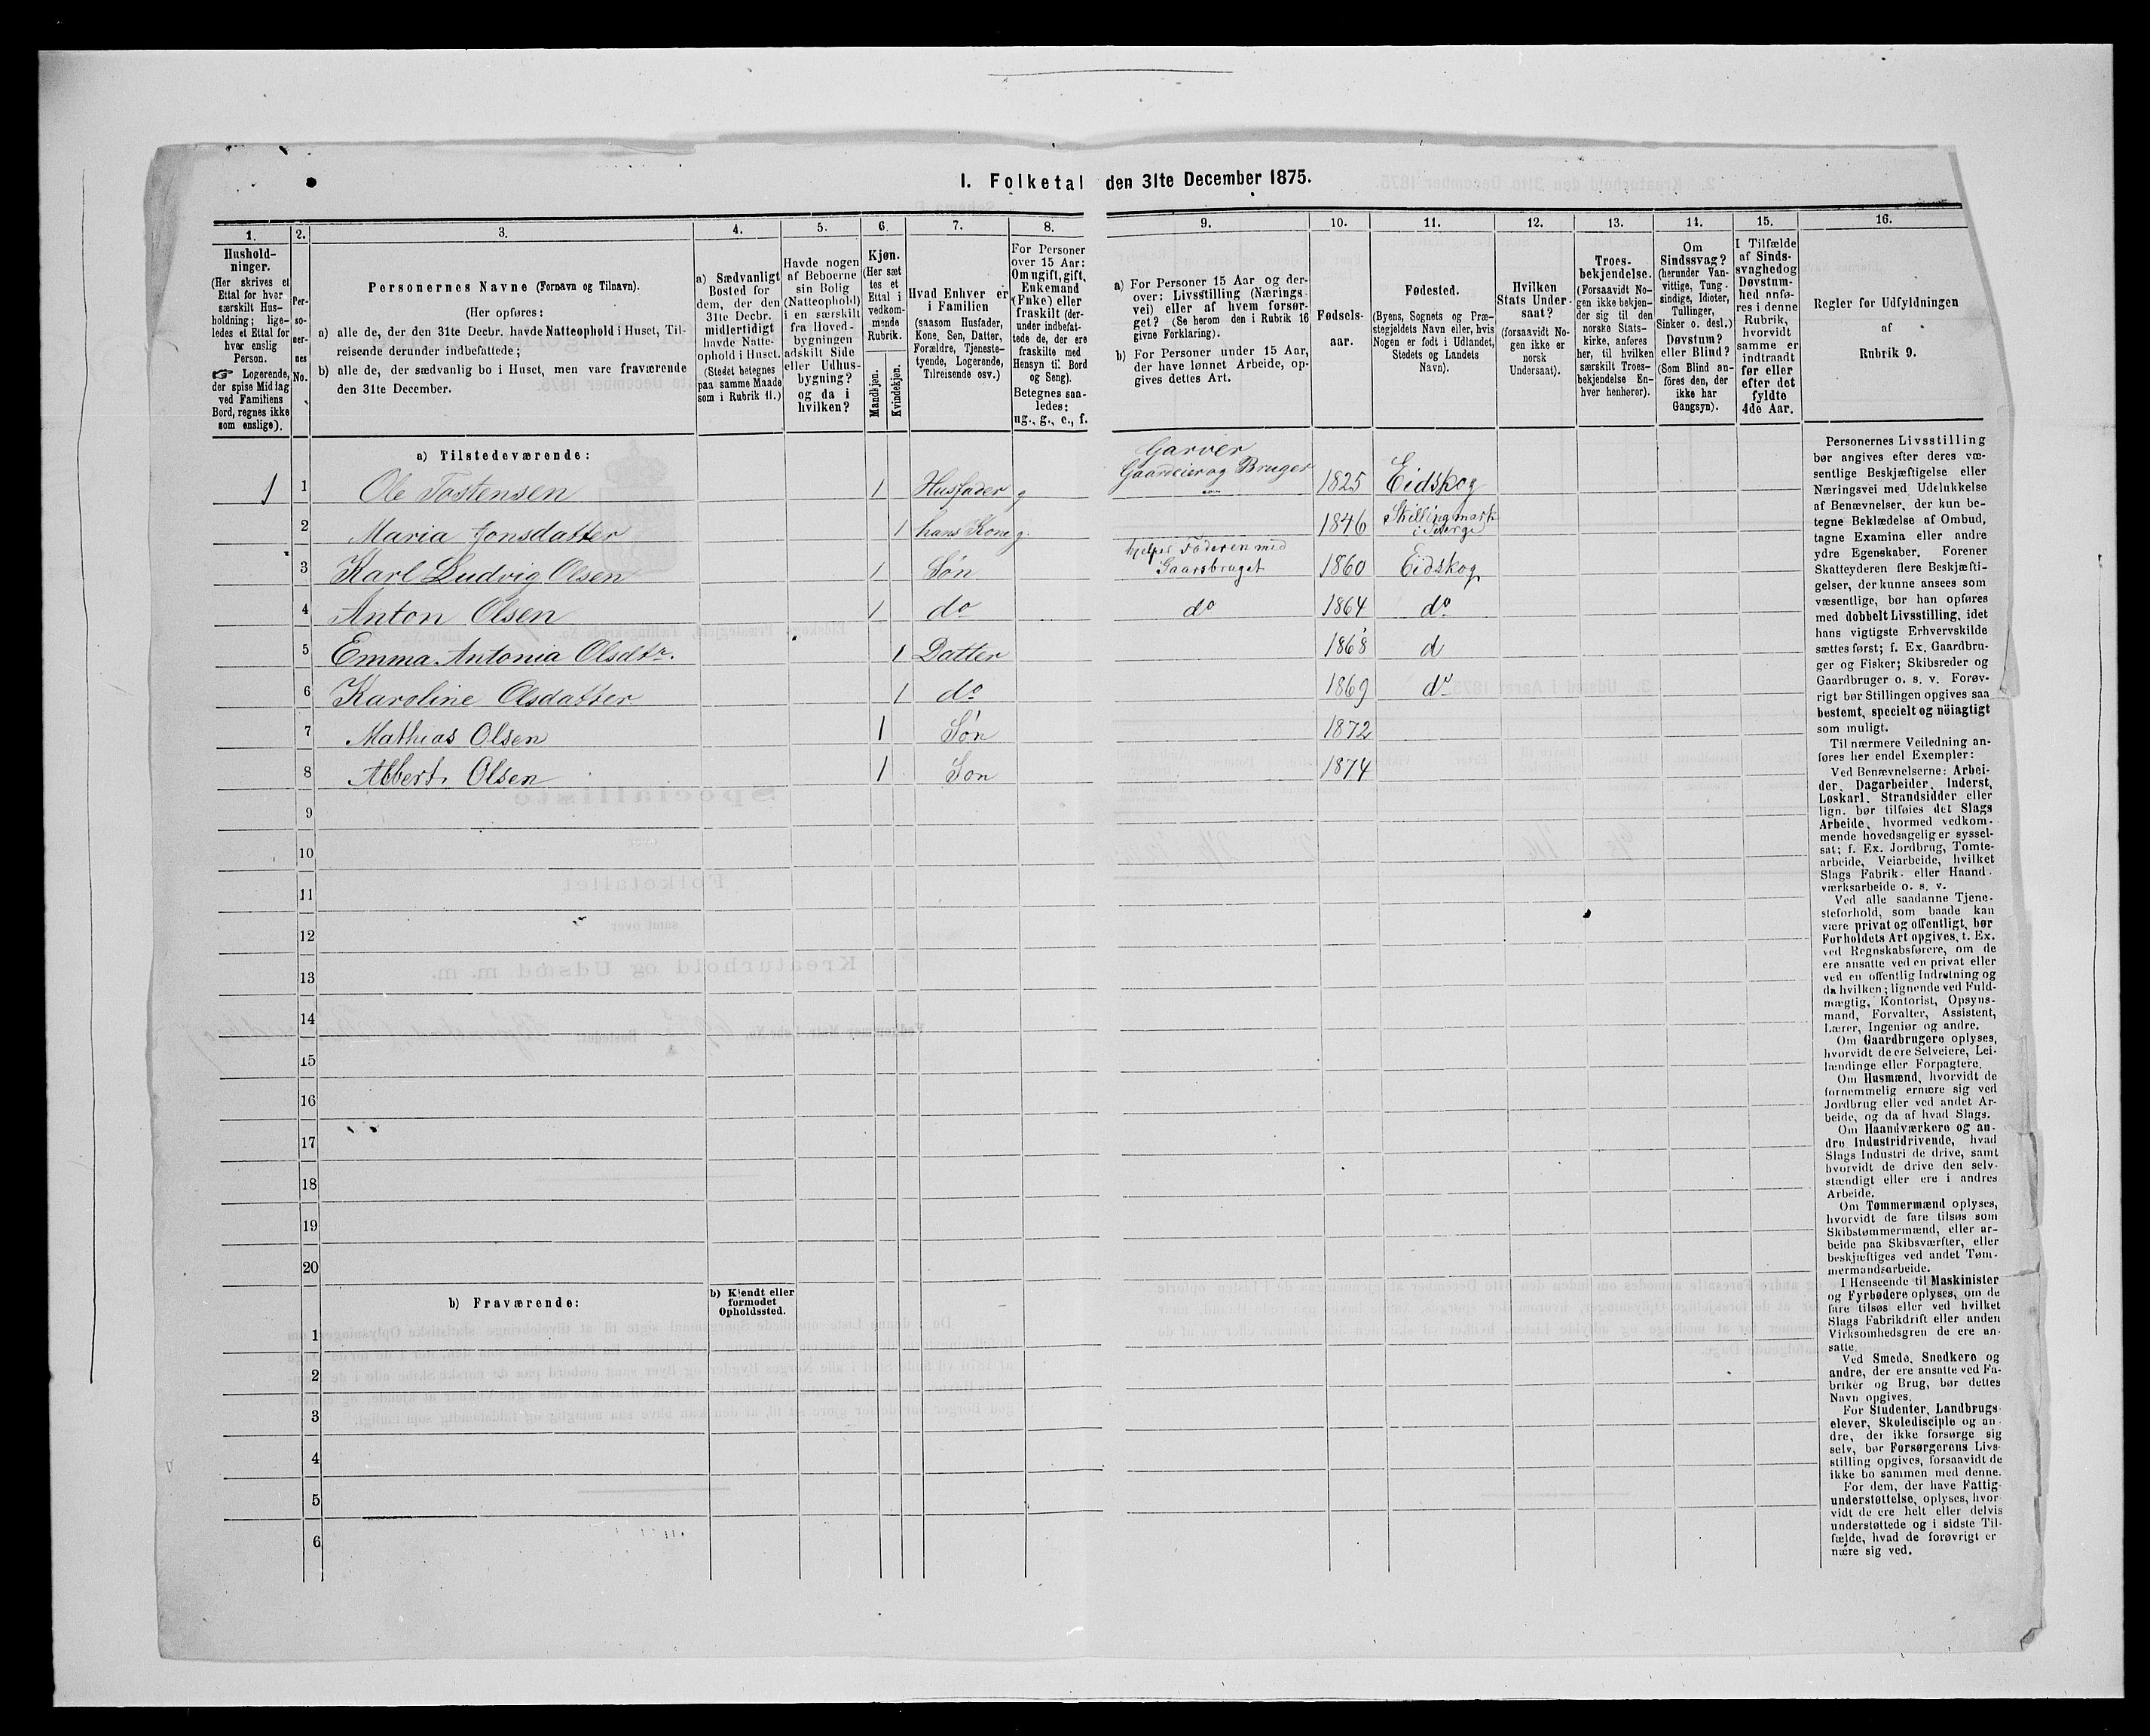 I. Folketal den 31te December 1875.
1.
Hushold-
ninger.
(Her skrives et
Ettal for hver
særskilt Hus-
holdning; lige-
ledes et Ettal for
hver enslig
Person.
☞ Logerende,
der spise Middag
ved Familiens
Bord, regnes ikke
som enslige).
2.
Per-
so-
ner-
nes
No.
3.
Personernes Navne (Fornavn og Tilnavn).
(Her opføres:
a) alle de, der den 31te Decbr. havde Natteophold i Huset, Til-
reisende derunder indbefattede;
b) alle de, der sædvanlig bo i Huset, men vare fraværende
den 31te December.
4.
a) Sædvanligt
Bosted for
dem, der den
31te Decbr.
midlertidigt
havde Natte-
ophold i Huset.
(Stedet betegnes
paa samme Maade
som i Rubrik 11.)
5.
Havde nogen
af Beboerne
sin Bolig
(Natteophold)
i en særskilt
fra Hoved-
bygningen
adskilt Side
eller Udhus-
bygning?
og da i
hvilken?
6.
Kjøn.
(Her sæt
tes et
Ettal i
vedkom-
mende
Rubrik.
Mandkjøn.
Kvindekjøn.
7.
Hvad Enhver er
i Familien
(saasom Husfader,
Kone, Søn, Datter,
Forældre, Tjeneste-
tyende, Logerende,
Tilreisende osv.)
8.
For Personer
over 15 Aar:
Om ugift, gift,
Enkemand
(Enke) eller
fraskilt (der-
under indbefat-
tede de, der ere
fraskilte med
Hensyn til Bord
og Seng).
Betegnes saa-
ledes:
ug., g., e., f.
9.
a) For Personer 15 Aar og der-
over: Livsstilling (Nærings-
vei) eller af hvem forsør-
get? (Se herom den i Rubrik 16
givne Forklaring).
b) For Personer under 15 Aar,
der have lønnet Arbeide, op-
gives dettes Art.
10.
Fødsels-
aar.
11.
Fødested.
(Byens, Sognets og Præ-
stegjeldets Navn eller, hvis
Nogen er født i Udlandet,
Stedets og Landets
Navn).
12.
Hvilken
Stats Under-
saat?
(forsaavidt No-
gen ikke er
norsk
Undersaat).
13.
Troes-
bekjendelse.
(Forsaavidt No-
gen ikke bekjen-
der sig til den
norske Stats-
kirke, anføres
her, til hvilken
særskilt Troes-
bekjendelse En-
hver henhører).
14.
Om
Sindssvag?
(herunder Van-
vittige, Tung-
sindige, Idioter,
Tullinger,
Sinker o. desl.)
Døvstum?
eller Blind?
(Som Blind an-
føres den, der
ikke har
Gangsyn).
15.
I Tilfælde
af Sinds-
svaghed og
Døvstum-
hed anfø-
res i denne
Rubrik,
hvorvidt
samme er
indtraadt
før eller
efter det
fyldte
4de Aar.
16.
Regler for Udfyldningen
af
Rubrik 9.
a) Tilstedeværende:
Garver
1 1 Ole Tostensen 1 Husfader g Gaardeier og Bruger 1825 Eidskog
2 Maria Jonsdatter 1 hans Kone g. 1846 Skillingmark
i Sverge
3 Karl Ludvig Olsen 1 Søn hjelper Faderen med
Gaarsbruget 1860 Eidskog
4 Anton Olsen 1 do do 1864 do
5 Emma Antonia Olsdtr. 1 Datter 1868 d
6 Karoline Olsdatter 1 do 1869 do
7 Mathias Olsen 1 Søn 1872
8 Albert Olsen 1 Son 1874
9
10
11
12
13
14
15
16
17
18
19
20
b) Fraværende:
b) Kjendt eller
formodet
Opholdssted.
1
2
3
4
5
6
Personernes Livsstilling
bør angives efter deres væ-
sentlige Beskjæftigelse eller
Næringsvei med Udelukkelse
af Benævnelser, der kun be-
tegne Beklædelse af Ombud,
tagne Examina eller andre
ydre Egenskaber. Forener
Skatteyderen flere Beskjæfti-
gelser, der kunne ansees som
væsentlige, bør han opføres
med dobbelt Livsstilling, idet
hans vigtigste Erhvervskilde
sættes først; f. Ex. Gaardbru-
ger og Fisker; Skibsreder og
Gaardbruger o. s. v. Forøv-
rigt bør Stillingen opgives saa
bestemt, specielt og nøiagtigt
som muligt.
Til nærmere Veiledning an-
føres her endel Exempler:
Ved Benævnelserne: Arbei-
der, Dagarbeider, Inderst,
Løskarl, Strandsidder eller
lign. bør tilføies det Slags
Arbeide, hvormed vedkom-
mende hovedsagelig er syssel-
sat; f. Ex. Jordbrug, Tomte-
arbeide, Veiarbeide, hvilket
Slags Fabrik- eller Haand-
værksarbeide o. s. v.
Ved alle saadanne Tjene-
steforhold, som baade kan
være privat og offentligt, bør
Forholdets Art opgives, t. Ex.
ved Regnskabsførere, om de
ere ansatte ved en privat eller
ved en offentlig Indretning og
da hvilken; lignende ved Fuld-
mægtig, Kontorist, Opsyns-
mand, Forvalter, Assistent,
Lærer, Ingeniør og andre.
Om Gaardbrugere oplyses,
hvorvidt de ere Selveiere, Lei-
lændinge eller Forpagtere.
Om Husmænd, hvorvidt de
fornemmelig ernære sig ved
Jordbrug eller ved andet Ar-
beide, og da af hvad Slags.
Om Haandværkere og an-
dre Industridrivende, hvad
Slags Industri de drive, samt
hvorvidt de drive den selv-
stændigt eller ere i andres
Arbeide.
Om Tømmermænd oplyses,
hvorvidt de fare tilsøs som
Skibstømmermænd, eller ar-
beide paa Skibsværfter, eller
beskjæftiges ved andet Tøm-
mermandsarbeide.
I Henseende til Maskinister
og Fyrbødere oplyses, om de
fare tilsøs eller ved hvilket
Slags Fabrikdrift eller anden
Virksomhedsgren de ere an-
satte.
Ved Smede, Snedkere og
andre, der ere ansatte ved Fa-
briker og Brug, bør dettes
Navn opgives.
For Studenter, Landbrugs-
elever, Skoledisciple og an-
dre, der ikke forsørge sig
selv, bør Forsørgerens Livs-
stilling opgives, forsaavidt de
ikke bo sammen med denne.
For dem, der have Fattig-
understøttelse, oplyses, hvor-
vidt de ere helt eller delvis
understøttede og i sidste Til-
fælde, hvad de forøvrigt er-
nære sig ved.